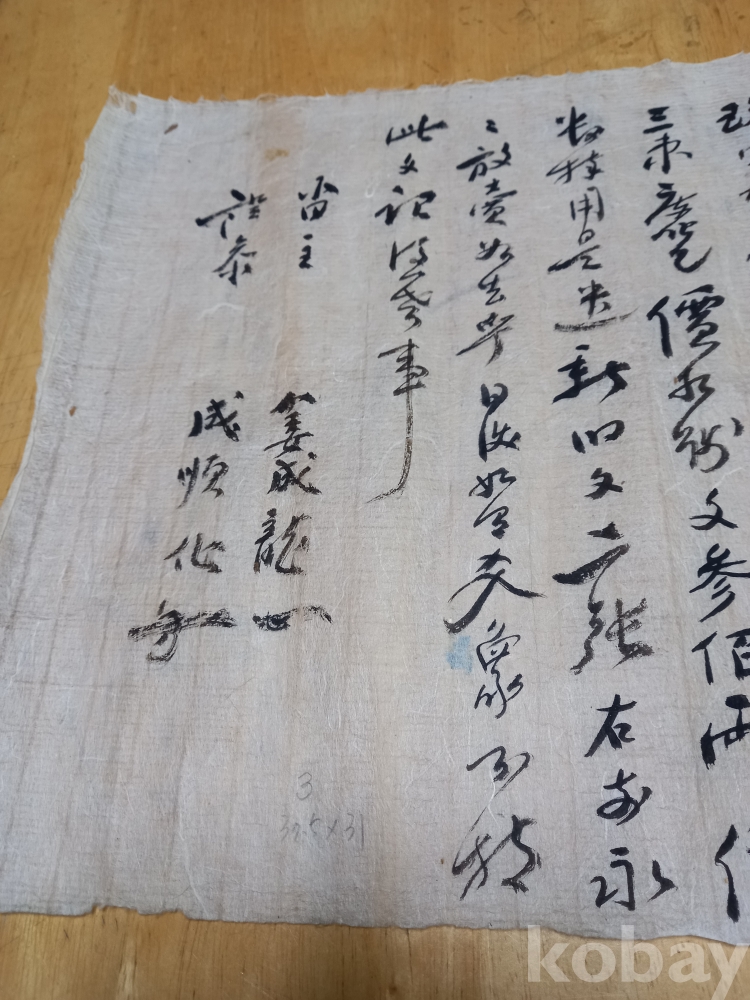 三束 價折錢文參佰兩
數捧用是遣新旧文二張右前永
〻放賣如去乎日後如有爻象
此文記憑考事
畓主 姜成龍
證參 成順化
3
32.5×31
kobay